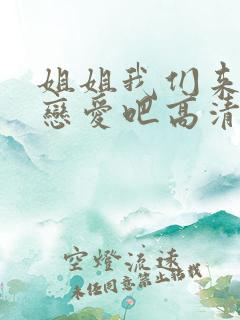 姐姐我们来
戀愛吧高清
空燈流遠
未经同意禁止转载